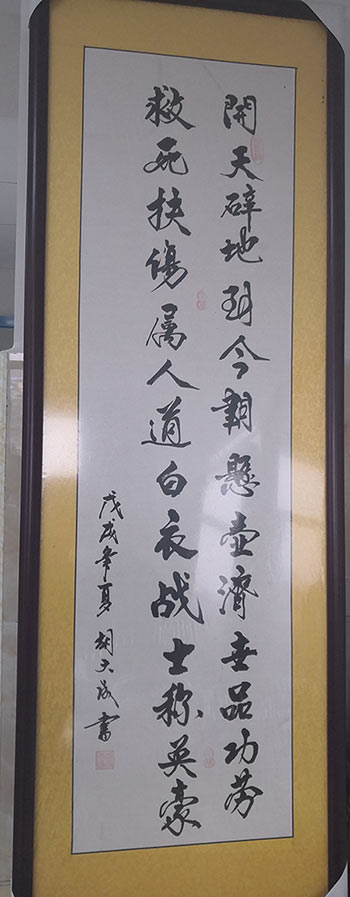 開天辟地到今朝懸壺濟世品功劳
救死扶傷属人道白衣战士称英豪
戊戌年夏胡天成書